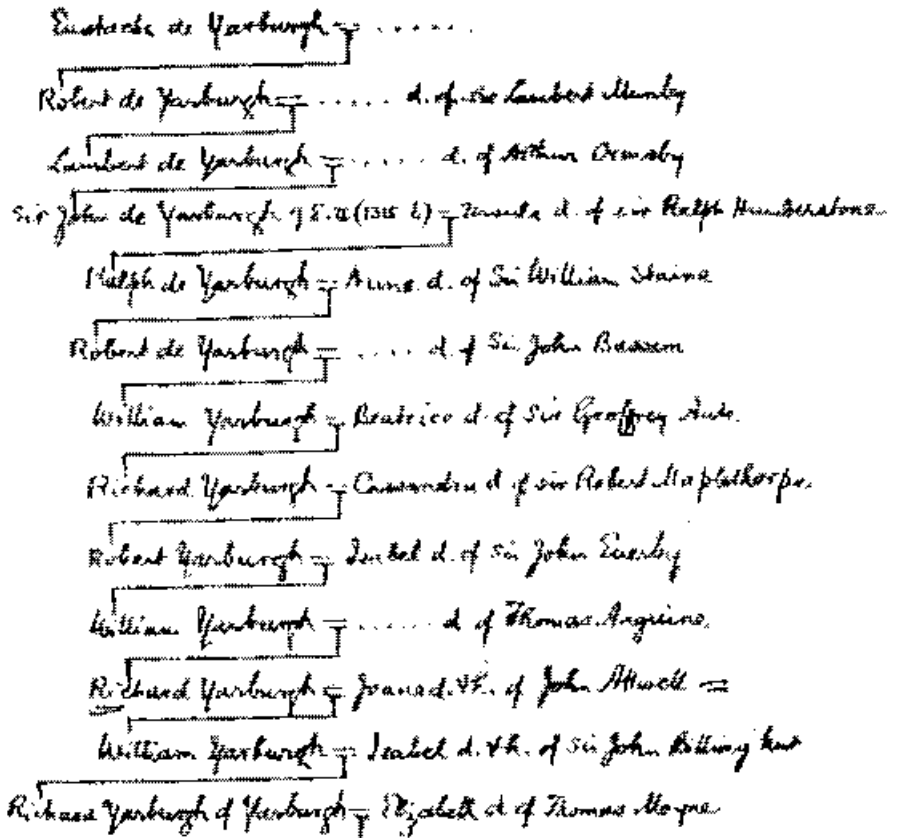 Eustache de Yarburgh = ......
Robert de Yarburgh = ..... d. of sir Lambert
Lambert de Yarburgh = ..... d. of Arthur Ormsby
Sir John de Yarburgh (1315 = Ursula d. of sir Ralph Humberstone
Ralph de Yarburgh = Anne d. of Sir William Staine
Robert de Yarburgh = .... d. of Sir John
William Yarburgh = Beatrice d. of Sir Geoffrey
Richard Yarburgh = Cassandra d. of sir Robert Maplethorpe
Robert Yarburgh = Isabel d. of Sir John
William Yarburgh = ...... d. of Thomas
Richard Yarburgh = Joan d. & h. of John Attwell =
William Yarburgh = Isabel d. & h. of Sir John
Richard Yarburgh of Yarburgh = Elizabeth d. of Thomas Moyne